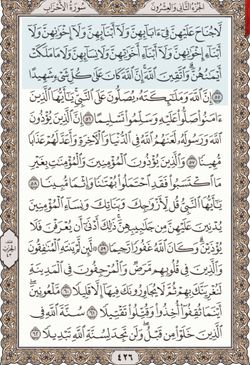 الجزء الثاني والعشرون سورة الأحزاب
لَّا جُنَاحَ عَلَيْهِنَّ فِىٓ ءَابَآئِهِنَّ وَلَآ أَبْنَآئِهِنَّ وَلَآ إِخْوَٰنِهِنَّ وَلَآ
أَبْنَآءِ إِخْوَٰنِهِنَّ وَلَآ أَبْنَآءِ أَخَوَٰتِهِنَّ وَلَا نِسَآئِهِنَّ وَلَا مَا مَلَكَتْ
أَيْمَٰنُهُنَّ وَٱتَّقِينَ ٱللَّهَ إِنَّ ٱللَّهَ كَانَ عَلَىٰ كُلِّ شَىْءٍ شَهِيدًا
٥٥ إِنَّ ٱللَّهَ وَمَلَٰٓئِكَتَهُۥ يُصَلُّونَ عَلَى ٱلنَّبِىِّ يَٰٓأَيُّهَا ٱلَّذِينَ
ءَامَنُوا۟ صَلُّوا۟ عَلَيْهِ وَسَلِّمُوا۟ تَسْلِيمًا ٥٦ إِنَّ ٱلَّذِينَ يُؤْذُونَ
ٱللَّهَ وَرَسُولَهُۥ لَعَنَهُمُ ٱللَّهُ فِى ٱلدُّنْيَا وَٱلْءَاخِرَةِ وَأَعَدَّ لَهُمْ عَذَابًا
مُّهِينًا ٥٧ وَٱلَّذِينَ يُؤْذُونَ ٱلْمُؤْمِنِينَ وَٱلْمُؤْمِنَٰتِ بِغَيْرِ
مَا ٱكْتَسَبُوا۟ فَقَدِ ٱحْتَمَلُوا۟ بُهْتَٰنًا وَإِثْمًا مُّبِينًا ٥٨
يَٰٓأَيُّهَا ٱلنَّبِىُّ قُل لِّأَزْوَٰجِكَ وَبَنَاتِكَ وَنِسَآءِ ٱلْمُؤْمِنِينَ
يُدْنِينَ عَلَيْهِنَّ مِن جَلَٰبِيبِهِنَّ ذَٰلِكَ أَدْنَىٰٓ أَن يُعْرَفْنَ فَلَا
يُؤْذَيْنَ وَكَانَ ٱللَّهُ غَفُورًا رَّحِيمًا ٥٩ لَّئِن لَّمْ يَنتَهِ ٱلْمُنَٰفِقُونَ
وَٱلَّذِينَ فِى قُلُوبِهِم مَّرَضٌ وَٱلْمُرْجِفُونَ فِى ٱلْمَدِينَةِ
لَنُغْرِيَنَّكَ بِهِمْ ثُمَّ لَا يُجَاوِرُونَكَ فِيهَآ إِلَّا قَلِيلًا ٦٠ مَّلْعُونِينَ
أَيْنَمَا ثُقِفُوٓا۟ أُخِذُوا۟ وَقُتِّلُوا۟ تَقْتِيلًا ٦١ سُنَّةَ ٱللَّهِ فِى
ٱلَّذِينَ خَلَوْا۟ مِن قَبْلُ وَلَن تَجِدَ لِسُنَّةِ ٱللَّهِ تَبْدِيلًا ٦٢
٤٢٦